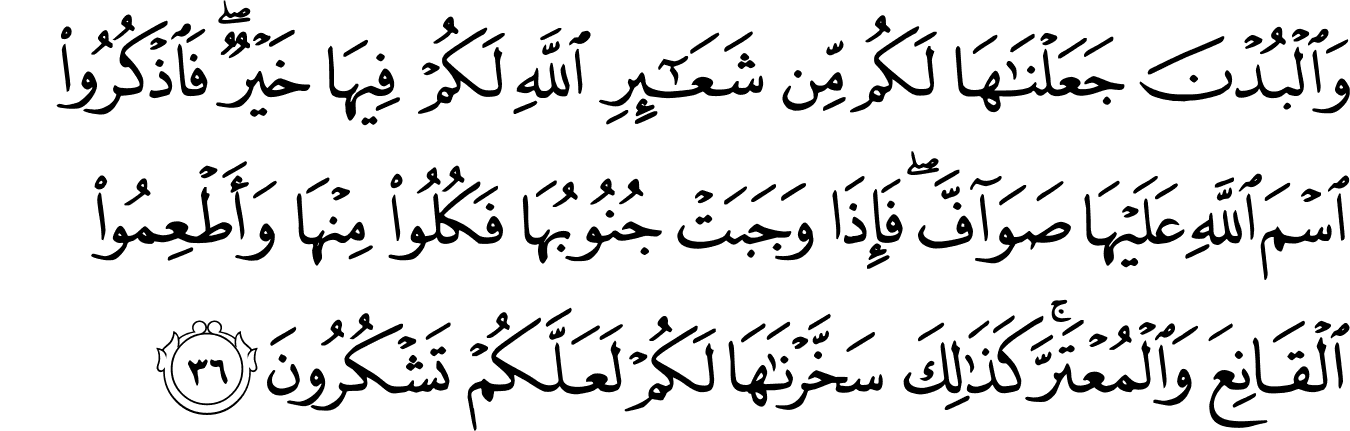 وَٱلْبُدْنَ جَعَلْنَـٰهَا لَكُم مِّن شَعَـٰٓئِرِ ٱللَّهِ لَكُمْ فِيهَا خَيْرٌ ۖ فَٱذْكُرُوا۟
ٱسْمَ ٱللَّهِ عَلَيْهَا صَوَآفَّ ۖ فَإِذَا وَجَبَتْ جُنُوبُهَا فَكُلُوا۟ مِنْهَا وَأَطْعِمُوا۟
ٱلْقَانِعَ وَٱلْمُعْتَرَّ ۚ كَذَٰلِكَ سَخَّرْنَـٰهَا لَكُمْ لَعَلَّكُمْ تَشْكُرُونَ ٣٦